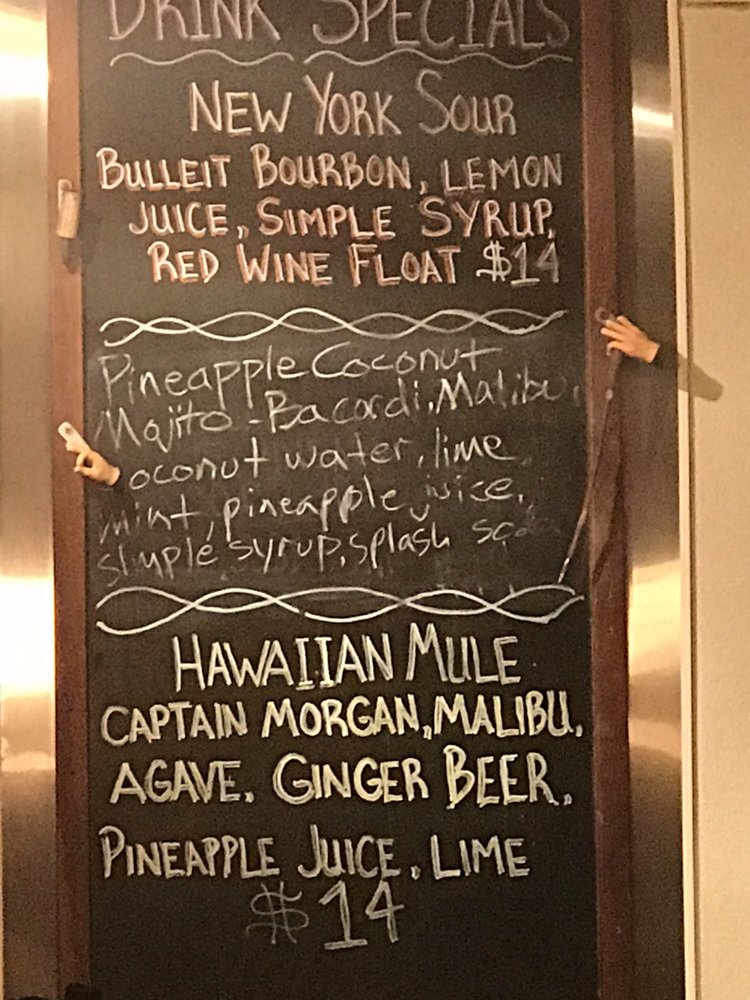 DRINK SPECIALS
NEW YORK SOUR
BULLEIT BOURBON, LEMON
JUICE, SIMPLE SYRUP,
RED WINE FLOAT $14
Pineapple Coconut
Mojito - Bacardi, Malibu,
oconut water, lime
mint, pineapple juice,
simple syrup, splash soda
HAWAIIAN MULE
CAPTAIN MORGAN, MALIBU,
AGAVE, GINGER BEER,
PINEAPPLE JUICE, LIME
$14